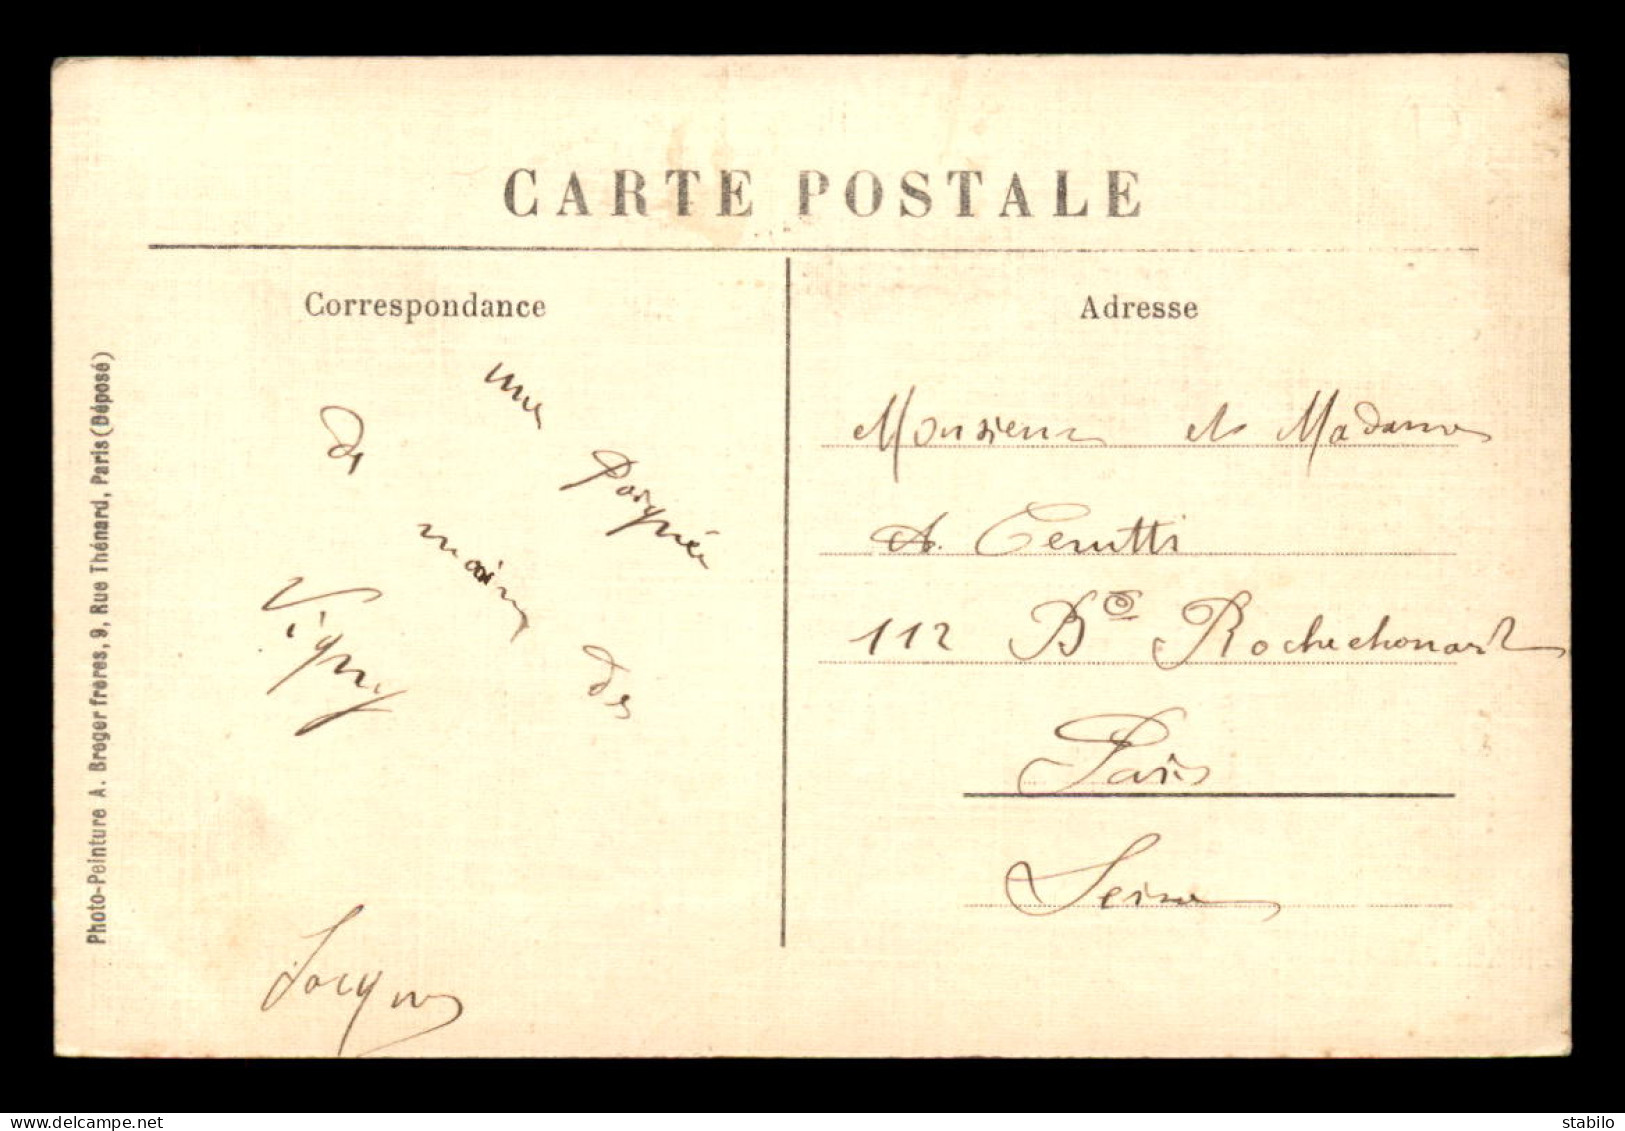 CARTE POSTALE
Correspondance
une Poignée
de mains des
Vigny
Jacques
Adresse
Monsieur et Madame
A. Cerutti
112 Bd Rochechouart
Paris
Seine
Photo-Peinture A. Breger frères, 9, Rue Thénard, Paris (Déposé)
delcampe.net
stabilo